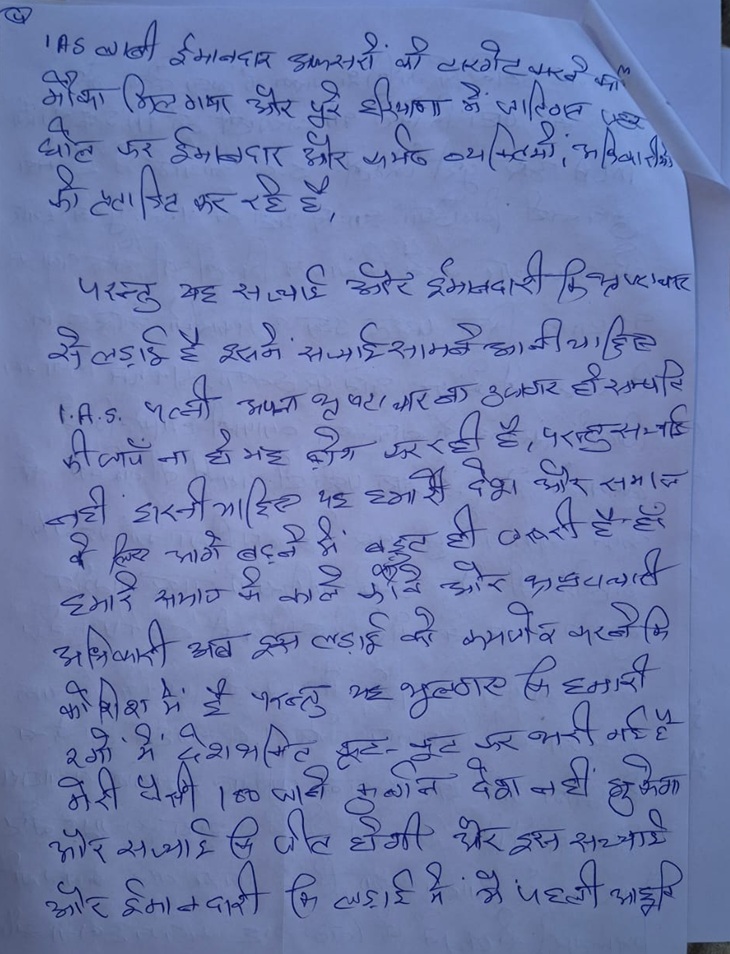 (4)
IAS लाबी ईमानदार अफसरों को टारगेट करने का
मौका मिल गया और पुरे हरियाणा में जातिवाद
घोल कर ईमानदार और कर्मठ व्यक्तियों, अधिकारीयो
को प्रताडित कर रहे है,
परन्तु यह सच्चाई और ईमानदारी कि भ्रष्टाचार
से लड़ाई है इसमें सच्चाई सामने आनी चाहिए
I.A.S. पत्नी अपना भ्रष्टाचार का उजागर हो सम्पति
की जाँच ना हो यह ढोंग कर रही है, परन्तु सच्चाई
नही हारनी चाहिए यह हमारे देश और समाज
के लिए आगे बढ़ने में बहुत ही जरूरी है हाँ
हमारे समाज के काले कौवे और भ्रष्टाचारी
अधिकारी अब इस लड़ाई को कमजोर करने कि
कोशिश में है परन्तु यह भुलगए कि हमारी
रगो में देशभक्ति कूट-कूट कर भरी गई है
मेरी जैसी 100 जाने कुर्बान देश नही झुकेगा
और सच्चाई कि जीत होगी और इस सच्चाई
और ईमानदारी कि लड़ाई में मैं पहली आहुति